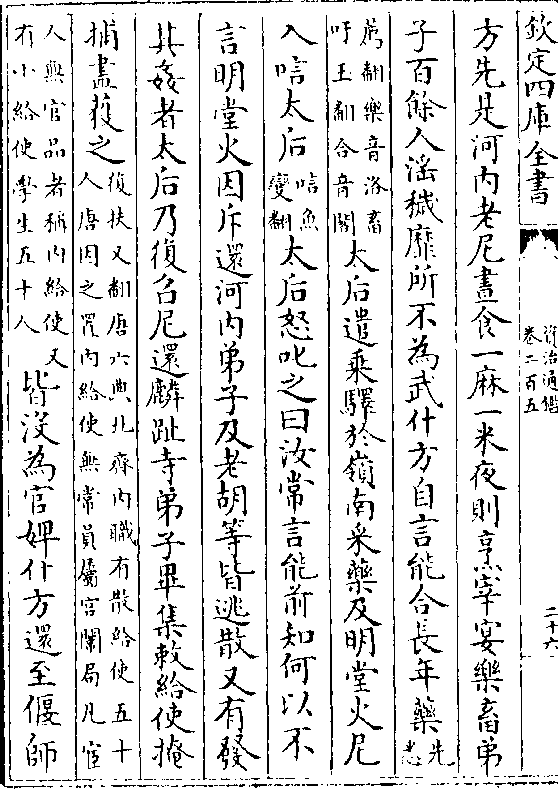 欽定四庫全書
資治通鑑
卷二百五
二十六
方先是河内老尼晝食一麻一米夜則烹宰宴樂畜弟
子百餘人淫穢靡所不為武什方自言能合長年藥先悉
薦翻樂音洛畜
吁玉翻合音閤
太后遣乗驛於嶺南采藥及明堂火尼
入唁太后
唁魚
變翻
太后怒叱之曰汝常言能前知何以不
言明堂火因斥還河内弟子及老胡等皆逃散又有發
其姦者太后乃復召尼還麟趾寺弟子畢集敕給使掩
捕盡獲之
復扶又翻唐六典北齊内職有散給使五十
人唐因之置内給使無常員屬宫闈局凡宦
人無官品者稱内給使又
有小給使學生五十人
皆没為官婢什方還至偃師